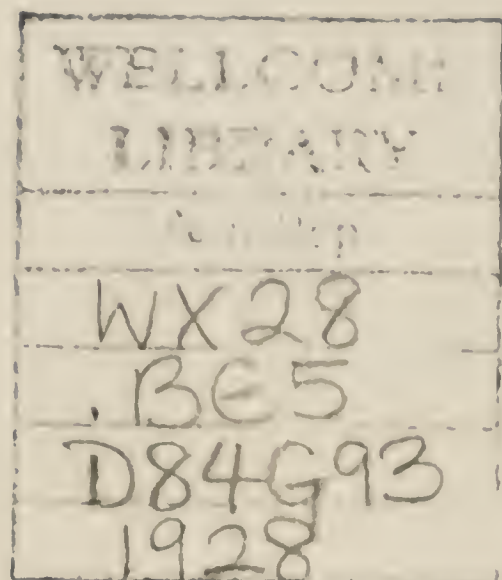 WELLCOME
LIBRARY
WX28
.BE5
D84G93
1928